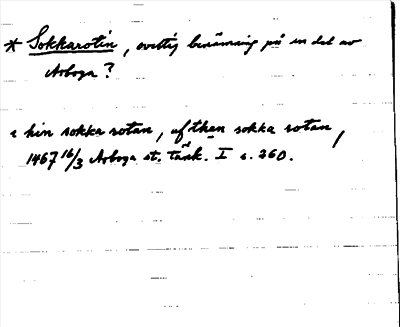 * Sokkarotin, ovettig benämning på en del av
Arboga?
i hin sokka rotan, uf than sokka rotan,
1467 16/3 Arboga st. tänk. I s. 260.